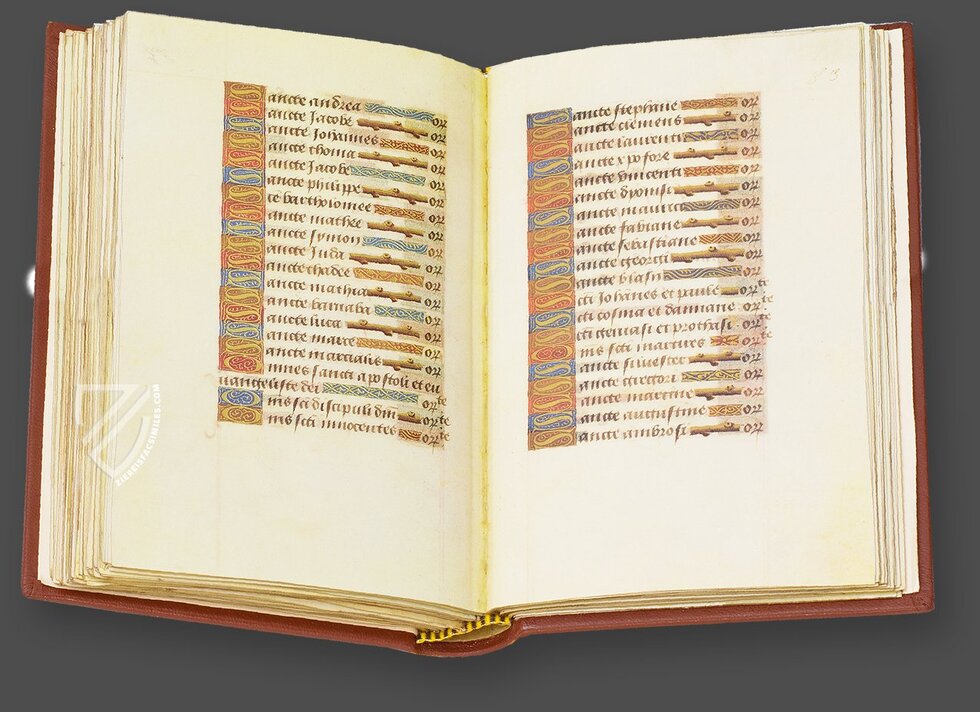 Sancte andrea or
Sancte Jacobe or
Sancte Johannes or
Sancte thoma or
Sancte Jacobe or
Sancte philippe or
Sce bartholomee or
Sancte mathee or
Sancte symon or
Sancte Juda or
Sancte thadee or
Sancte mathia or
Sancte barnaba or
Sancte luca or
Sancte marce or
Sancte marcialis or
Omnes sancti apostoli et eu
uangeliste dei orte
Omnis scti discipuli dni orte
Omnis scti innocentes orte
Sancte stephane or
Sancte clemens or
Sancte laurenti or
Sancte xpofore or
Sancte vincenti or
Sancte dyonisi or
Sancte maurici or
Sancte fabiane or
Sancte sebastiane or
Sancte georgi or
Sancte blasii or
Scti Johanes et paule orte
Scti cosma et damiane orte
Scti geruasi et prothasi orte
Omnis scti martires orte
Sancte siluester or
Sancte gregori or
Sancte martine or
Sancte augustine or
Sancte ambrosi or
ZIEREISFACSIMILES.COM